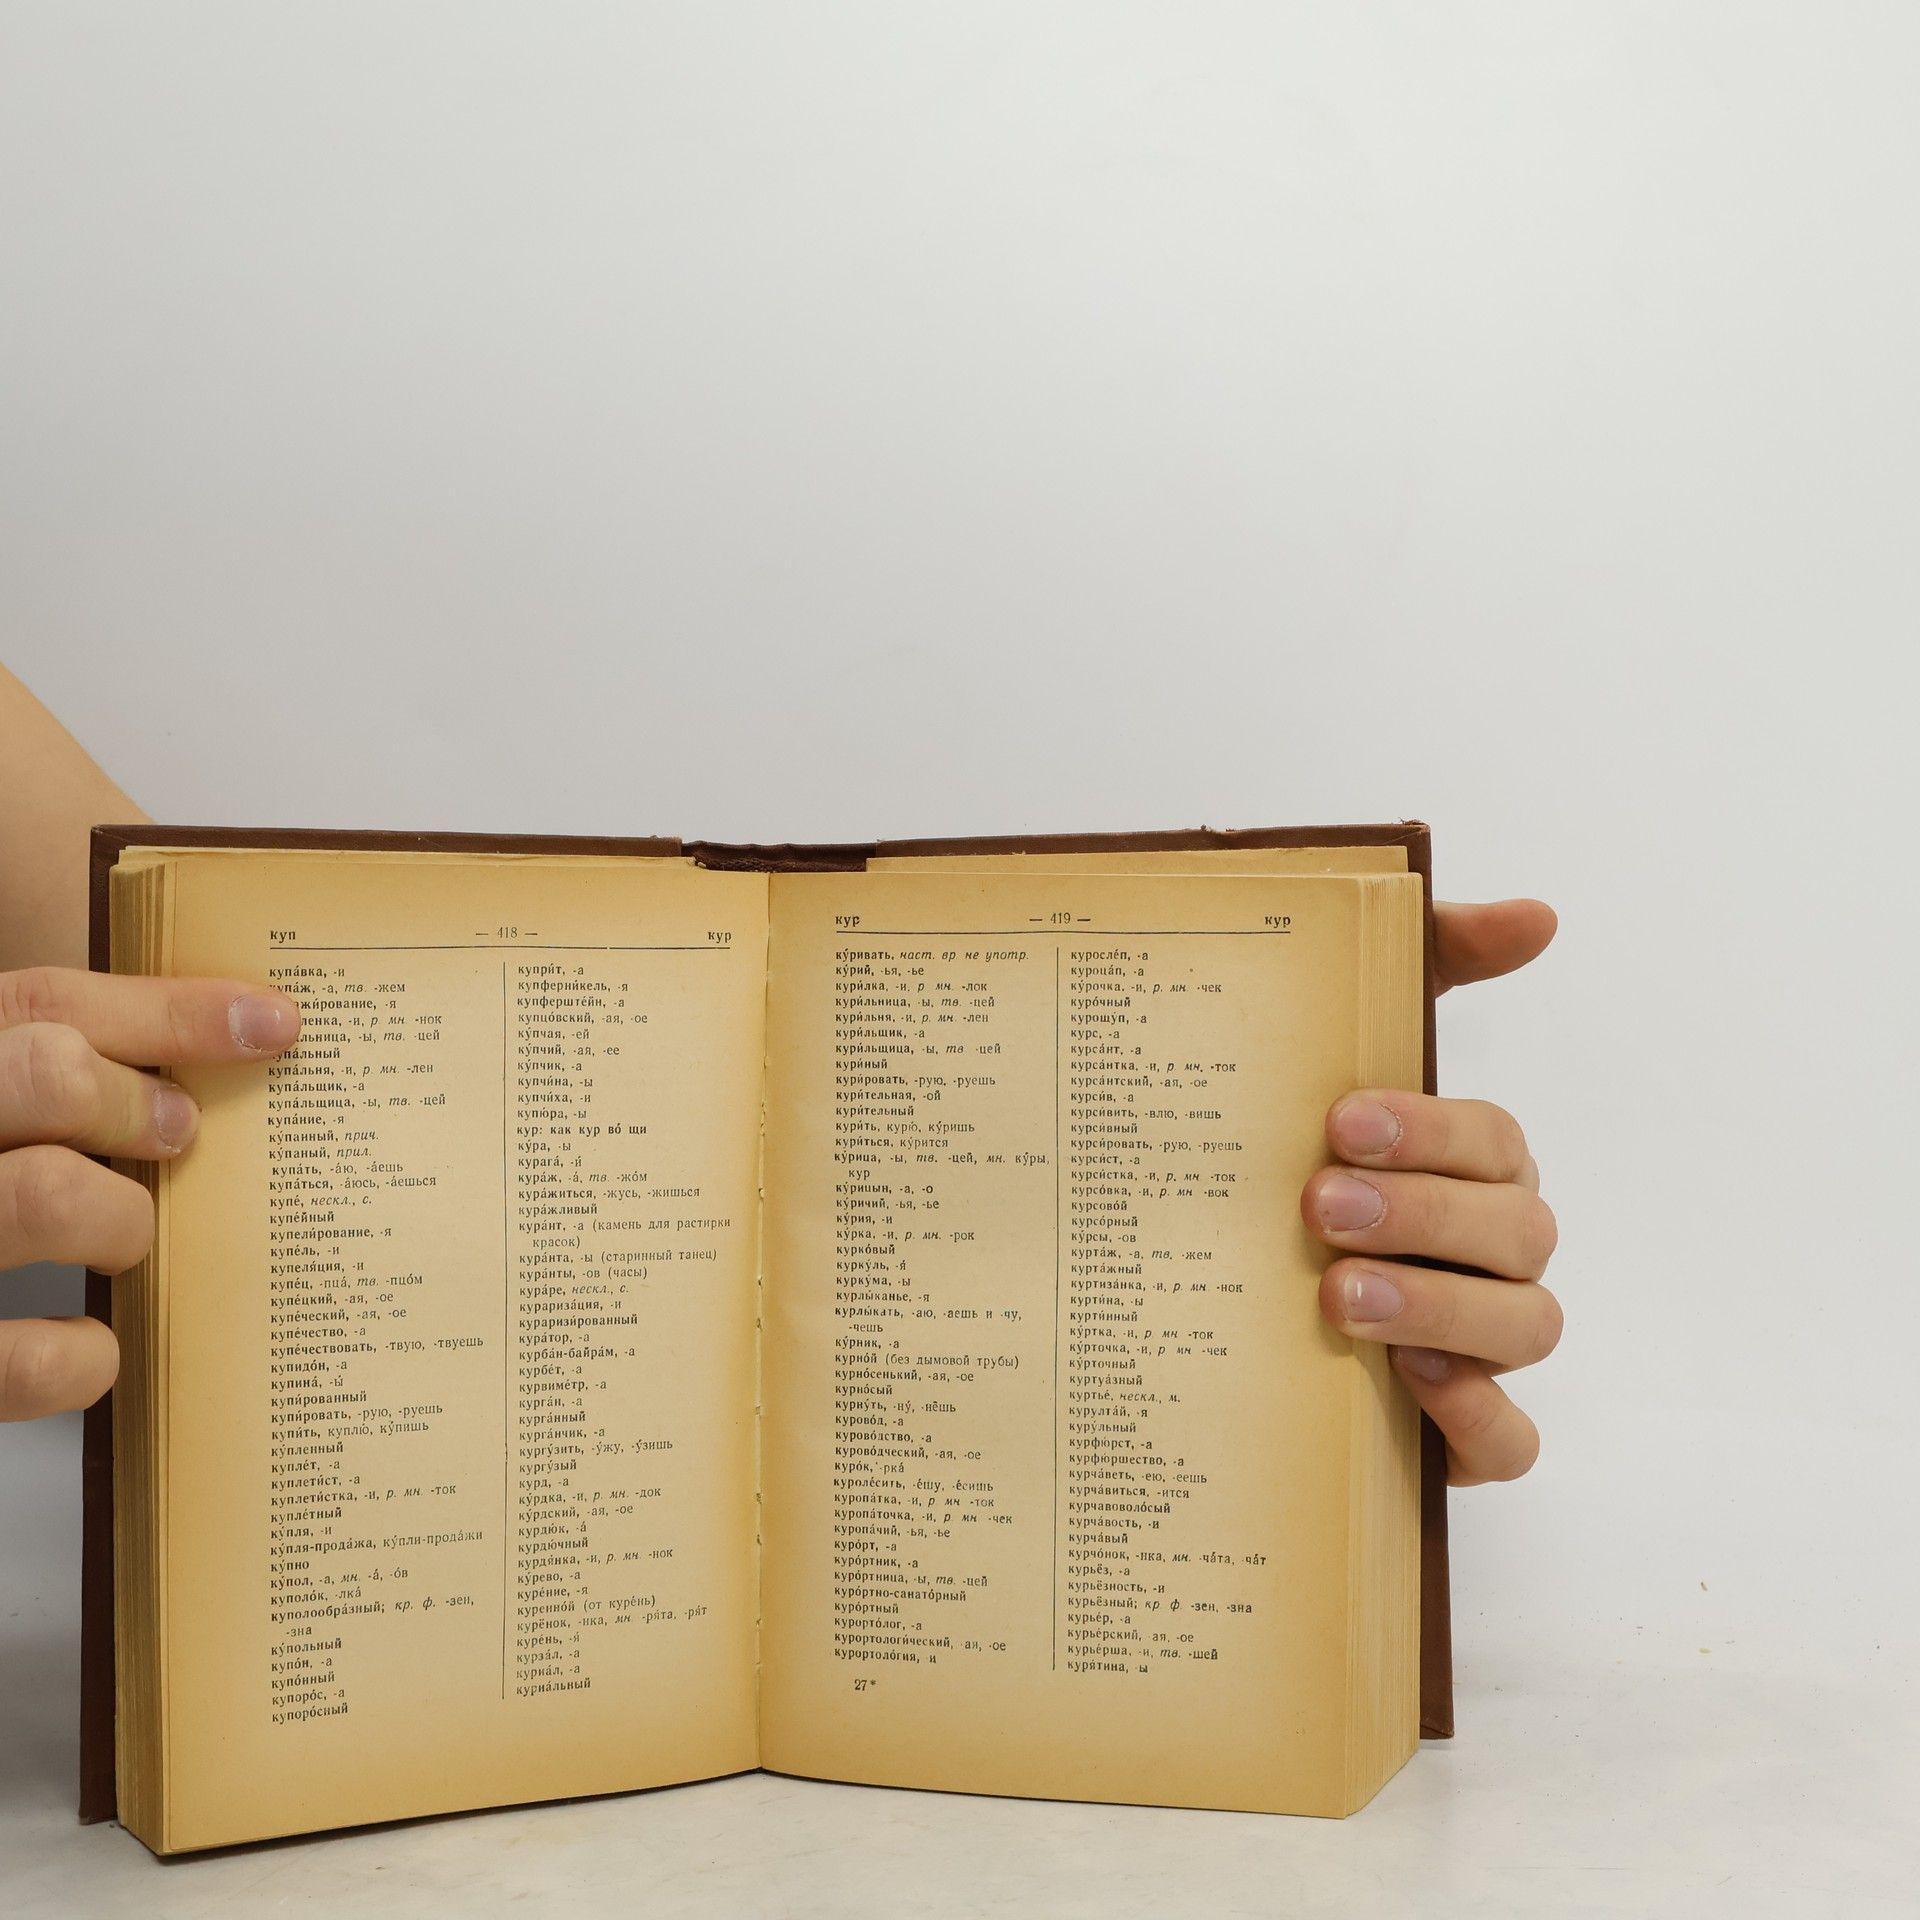 куп — 418 — кур
купа́вка, -и
купа́ж, -а, тв. -жем
-я
-и, р. мн. -нок
-ы, тв. -цей
купа́льный
купа́льня, -и, р. мн. -лен
купа́льщик, -а
купа́льщица, -ы, тв. -цей
купа́ние, -я
ку́панный, прич.
ку́паный, прил.
купа́ть, -а́ю, -а́ешь
купа́ться, -а́юсь, -а́ешься
купе́, нескл., с.
купе́йный
купели́рование, -я
купе́ль, -и
купеля́ция, -и
купе́ц, -пца́, тв. -пцо́м
купе́цкий, -ая, -ое
купе́ческий, -ая, -ое
купе́чество, -а
купе́чествовать, -твую, -твуешь
купидо́н, -а
купина́, -ы́
купи́рованный
купи́ровать, -рую, -руешь
купи́ть, куплю́, ку́пишь
ку́пленный
купле́т, -а
куплети́ст, -а
куплети́стка, -и, р. мн. -ток
купле́тный
ку́пля, -и
ку́пля-прода́жа, ку́пли-прода́жи
ку́пно
ку́пол, -а, мн. -а́, -о́в
куполо́к, -лка́
куполообра́зный; кр. ф. -зен,
-зна
ку́польный
купо́н, -а
купо́нный
купоро́с, -а
купоро́сный
купри́т, -а
купферни́кель, -я
купферште́йн, -а
купцо́вский, -ая, -ое
ку́пчая, -ей
ку́пчий, -ая, -ее
ку́пчик, -а
купчи́на, -ы
купчи́ха, -и
купю́ра, -ы
кур: как кур во́ щи
ку́ра, -ы
курага́, -и́
кура́ж, -а́, тв. -жо́м
кура́житься, -жусь, -жишься
кура́жливый
кура́нт, -а (камень для растирки
красок)
кура́нта, -ы (старинный танец)
кура́нты, -ов (часы)
кура́ре, нескл., с.
курариза́ция, -и
кураризи́рованный
кура́тор, -а
курба́н-байра́м, -а
курбе́т, -а
курвиме́тр, -а
курга́н, -а
курга́нный
курга́нчик, -а
кургу́зить, -у́жу, -у́зишь
кургу́зый
курд, -а
ку́рдка, -и, р. мн. -док
ку́рдский, -ая, -ое
курдю́к, -а́
курдю́чный
курдя́нка, -и, р. мн. -нок
ку́рево, -а
куре́ние, -я
куренно́й (от куре́нь)
курёнок, -нка, мн. -ря́та, -ря́т
куре́нь, -я́
курза́л, -а
куриа́л, -а
куриа́льный
кур — 419 — кур
ку́ривать, наст. вр. не употр.
ку́рий, -ья, -ье
кури́лка, -и, р. мн. -лок
кури́льница, -ы, тв. -цей
кури́льня, -и, р. мн. -лен
кури́льщик, -а
кури́льщица, -ы, тв. -цей
кури́ный
кури́ровать, -рую, -руешь
кури́тельная, -ой
кури́тельный
кури́ть, курю́, ку́ришь
кури́ться, ку́рится
ку́рица, -ы, тв. -цей, мн. ку́ры,
кур
ку́рицын, -а, -о
ку́ричий, -ья, -ье
ку́рия, -и
ку́рка, -и, р. мн. -рок
курко́вый
курку́ль, -я́
курку́ма, -ы
курлы́канье, -я
курлы́кать, -аю, -аешь и -чу,
-чешь
ку́рник, -а
курно́й (без дымовой трубы)
курно́сенький, -ая, -ое
курно́сый
курну́ть, -ну́, -нёшь
курово́д, -а
курово́дство, -а
курово́дческий, -ая, -ое
куро́к, -рка́
куроле́сить, -е́шу, -е́сишь
куропа́тка, -и, р. мн. -ток
куропа́точка, -и, р. мн. -чек
куропа́чий, -ья, -ье
куро́рт, -а
куро́ртник, -а
куро́ртница, -ы, тв. -цей
куро́ртно-санато́рный
куро́ртный
курорто́лог, -а
курортологи́ческий, -ая, -ое
курортоло́гия, -и
27*
куросле́п, -а
куроца́п, -а
ку́рочка, -и, р. мн. -чек
куро́чный
курощу́п, -а
курс, -а
курса́нт, -а
курса́нтка, -и, р. мн. -ток
курса́нтский, -ая, -ое
курси́в, -а
курси́вить, -влю, -вишь
курси́вный
курси́ровать, -рую, -руешь
курси́ст, -а
курси́стка, -и, р. мн. -ток
курсо́вка, -и, р. мн. -вок
курсово́й
курсо́рный
ку́рсы, -ов
курта́ж, -а, тв. -жем
курта́жный
куртиза́нка, -и, р. мн. -нок
курти́на, -ы
курти́нный
ку́ртка, -и, р. мн. -ток
ку́рточка, -и, р. мн. -чек
ку́рточный
куртуа́зный
куртье́, нескл., м.
курулта́й, -я
куру́льный
курфю́рст, -а
курфю́ршество, -а
курча́веть, -ею, -еешь
курча́виться, -ится
курчавоволо́сый
курча́вость, -и
курча́вый
курчо́нок, -нка, мн. -ча́та, -ча́т
курьёз, -а
курьёзность, -и
курьёзный; кр. ф. -зен, -зна
курье́р, -а
курье́рский, -ая, -ое
курье́рша, -и, тв. -шей
куря́тина, -ы